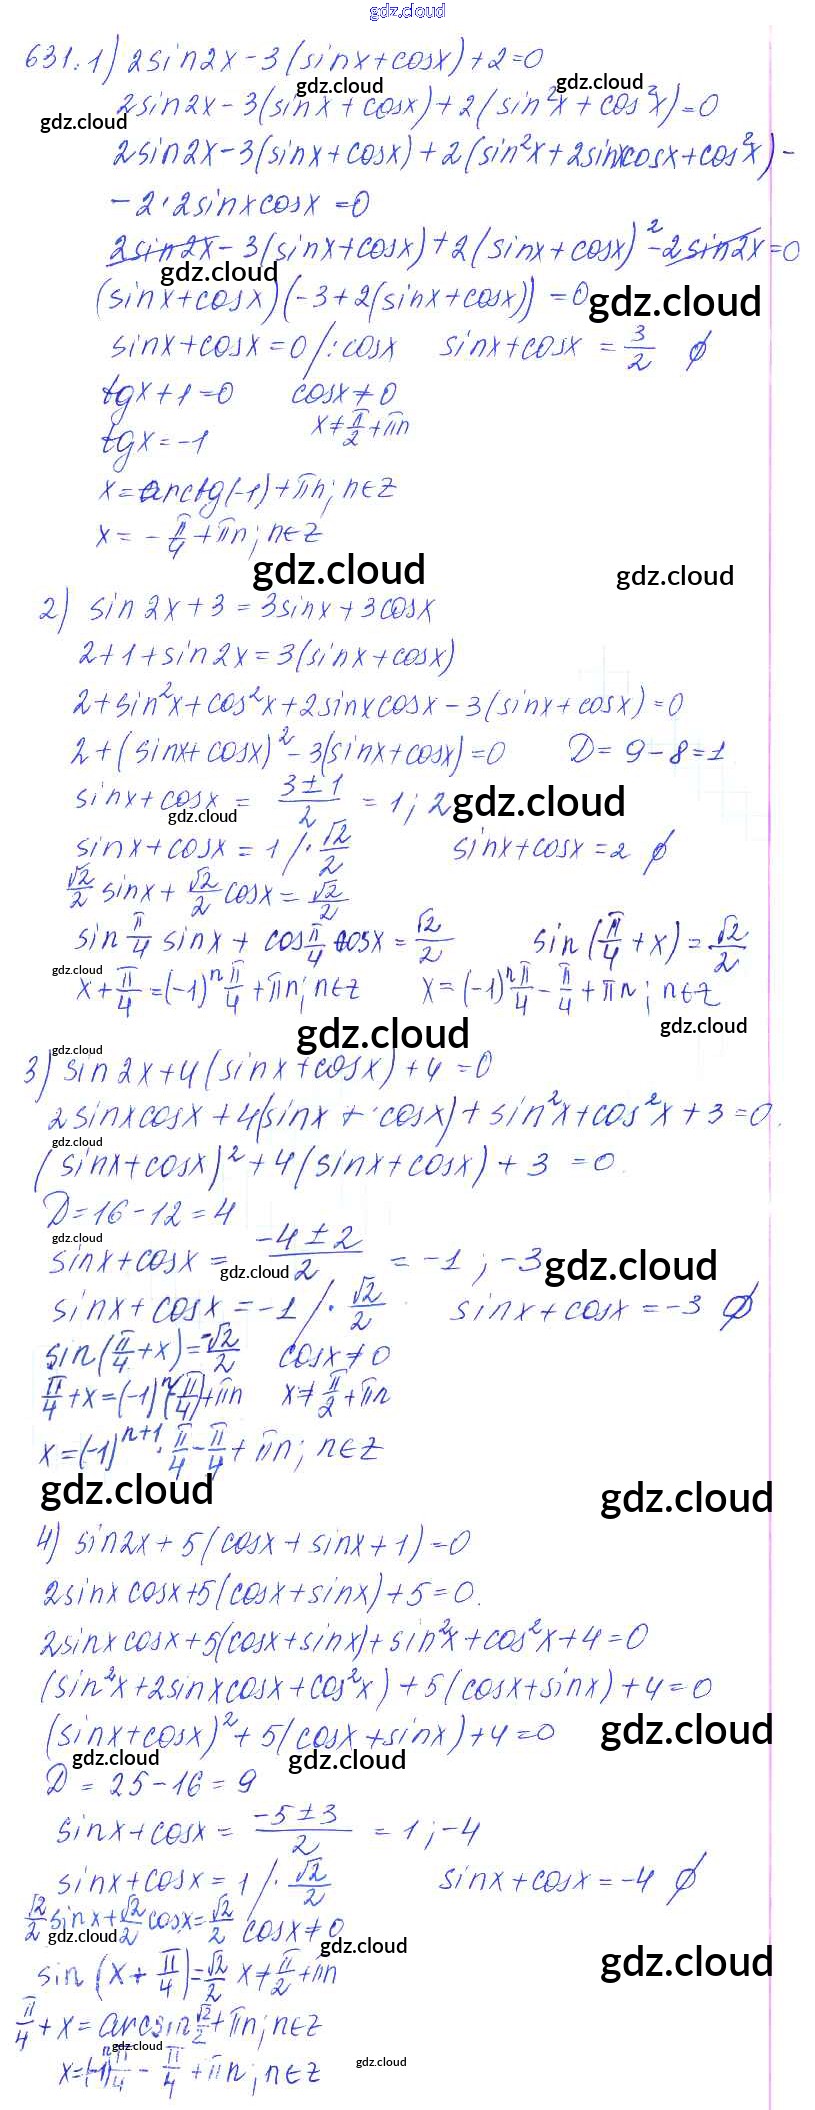 gdz.cloud
631. 1) 2sin2x - 3(sinx + cosx) + 2 = 0
gdz.cloud gdz.cloud
2sin2x - 3(sinx + cosx) + 2(sin²x + cos²x) = 0
gdz.cloud
2sin2x - 3(sinx + cosx) + 2(sin²x + 2sinxcosx + cos²x) -
- 2·2sinxcosx = 0
2sin2x - 3(sinx + cosx) + 2(sinx + cosx)² - 2sin2x = 0
gdz.cloud
(sinx + cosx)(-3 + 2(sinx + cosx)) = 0 gdz.cloud
sinx + cosx = 0 /: cosx sinx + cosx = 3/2 ∅
tgx + 1 = 0 cosx ≠ 0
tgx = -1 x ≠ π/2 + πn
x = arctg(-1) + πn; n∈Z
x = -π/4 + πn; n∈Z
gdz.cloud gdz.cloud
2) sin2x + 3 = 3sinx + 3cosx
2 + 1 + sin2x = 3(sinx + cosx)
2 + sin²x + cos²x + 2sinxcosx - 3(sinx + cosx) = 0
2 + (sinx + cosx)² - 3(sinx + cosx) = 0 D = 9 - 8 = 1
sinx + cosx = (3 ± 1)/2 = 1; 2 gdz.cloud
gdz.cloud
sinx + cosx = 1 /· √2/2 sinx + cosx = 2 ∅
√2/2 sinx + √2/2 cosx = √2/2
sin π/4 sinx + cos π/4 cosx = √2/2 sin(π/4 + x) = √2/2
gdz.cloud
x + π/4 = (-1)ⁿ π/4 + πn; n∈Z x = (-1)ⁿ π/4 - π/4 + πn; n∈Z
gdz.cloud gdz.cloud
gdz.cloud
3) sin2x + 4(sinx + cosx) + 4 = 0
2sinxcosx + 4(sinx + cosx) + sin²x + cos²x + 3 = 0.
gdz.cloud
(sinx + cosx)² + 4(sinx + cosx) + 3 = 0.
D = 16 - 12 = 4
gdz.cloud
sinx + cosx = (-4 ± 2)/2 = -1; -3 gdz.cloud
gdz.cloud
sinx + cosx = -1 /· √2/2 sinx + cosx = -3 ∅
sin(π/4 + x) = -√2/2 cosx ≠ 0
π/4 + x = (-1)ⁿ(-π/4) + πn x ≠ π/2 + πn
x = (-1)ⁿ⁺¹ · π/4 - π/4 + πn; n∈Z
gdz.cloud gdz.cloud
4) sin2x + 5(cosx + sinx + 1) = 0
2sinxcosx + 5(cosx + sinx) + 5 = 0.
2sinxcosx + 5(cosx + sinx) + sin²x + cos²x + 4 = 0
(sin²x + 2sinxcosx + cos²x) + 5(cosx + sinx) + 4 = 0
(sinx + cosx)² + 5(cosx + sinx) + 4 = 0 gdz.cloud
gdz.cloud gdz.cloud
D = 25 - 16 = 9
sinx + cosx = (-5 ± 3)/2 = 1; -4
sinx + cosx = 1 /· √2/2 sinx + cosx = -4 ∅
√2/2 sinx + √2/2 cosx = √2/2 cosx ≠ 0
gdz.cloud gdz.cloud
sin(x + π/4) = √2/2 x ≠ π/2 + πn gdz.cloud
π/4 + x = arcsin √2/2 + πn; n∈Z
gdz.cloud
x = (-1)ⁿ π/4 - π/4 + πn; n∈Z gdz.cloud